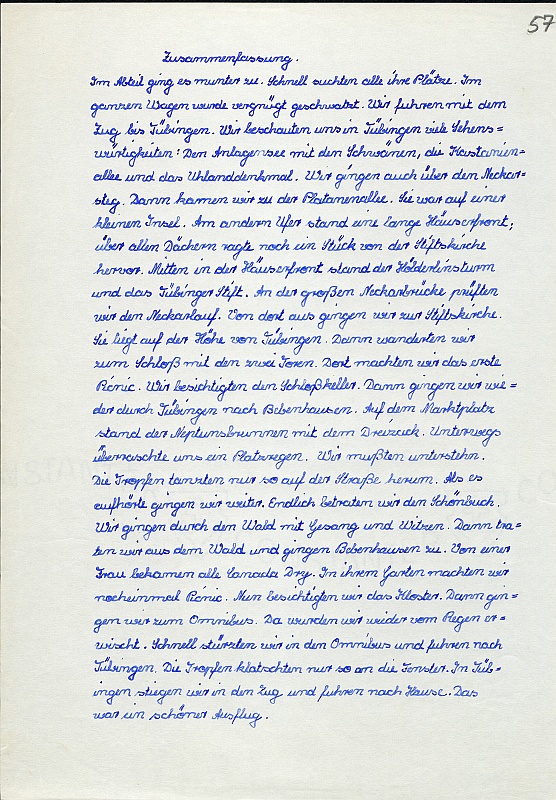 57
Zusammenfassung.
Im Abteil ging es munter zu. Schnell suchten alle ihre Plätze. Im
ganzen Wagen wurde vergnügt geschwatzt. Wir fuhren mit dem
Zug bis Tübingen. Wir beschauten uns in Tübingen viele Sehens=
würtigkeiten: Den Anlagensee mit den Schwänen, die Kastanien=
allee und das Uhlanddenkmal. Wir gingen auch über den Neckar=
steg. Dann kamen wir zu der Platanenallee. Sie war auf einer
kleinen Insel. Am andern Ufer stand eine lange Häuserfront;
über allen Dächern ragte noch ein Stück von der Stiftskirche
hervor. Mitten in der Häuserfront stand der Hölderlinsturm
und das Tübinger Stift. An der großen Neckarbrücke prüften
wir den Neckarlauf. Von dort aus gingen wir zur Stiftskirche.
Sie liegt auf der Höhe von Tübingen. Dann wanderten wir
zum Schloß mit den zwei Toren. Dort machten wir das erste
Picnic. Wir besichtigten den Schloßkeller. Dann gingen wir wie=
der durch Tübingen nach Bebenhausen. Auf dem Marktplatz
stand der Neptunsbrunnen mit dem Dreizack. Unterwegs
überraschte uns ein Platzregen. Wir mußten unterstehn.
Die Tropfen tanzten nur so auf der Straße herum. Als es
aufhörte gingen wir weiter. Endlich betraten wir den Schönbuch.
Wir gingen durch den Wald mit Gesang und Witzen. Dann tra=
ten wir aus dem Wald und gingen Bebenhausen zu. Von einer
Frau bekamen alle Canada Dry. In ihrem Garten machten wir
nocheinmal Picnic. Nun besichtigten wir das Kloster. Dann gin=
gen wir zum Omnibus. Da wurden wir wieder vom Regen er=
wischt. Schnell stürzten wir in den Omnibus und fuhren nach
Tübingen. Die Tropfen klatschten nur so an die Fenster. In Tüb=
ingen stiegen wir in den Zug und fuhren nach Hause. Das
war ein schöner Ausflug.